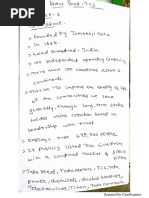 TCS
→ Founded by Jamsetji Tata
→ In 1868
→ head quartered - India
→ 100 independent operating Companies
→ more than 100 countries across 6
continents.
→ Mission to improve the quality of life
of the communities we serve
globally, through long-term stake
holder value creation based on
Leadership with trust
→ employs over people
→ 29 Publicly listed Tata Enterprises
with a combined market of
→ Tata Steel, Tata motors, TCS, Tata
power, chemicals, global beverages,
teleservices, Titan, Tata communi
Scanned by CamScanner